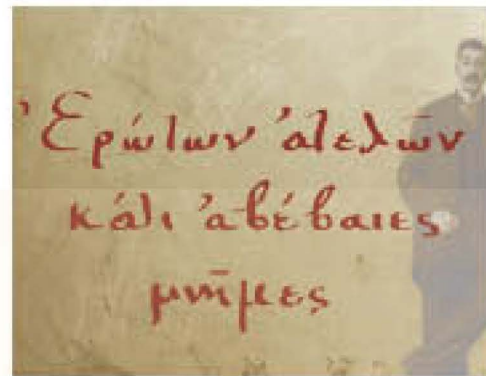 Ἐρώτων ἀτελῶν
κάτι ἀβέβαιες
μνῆμες